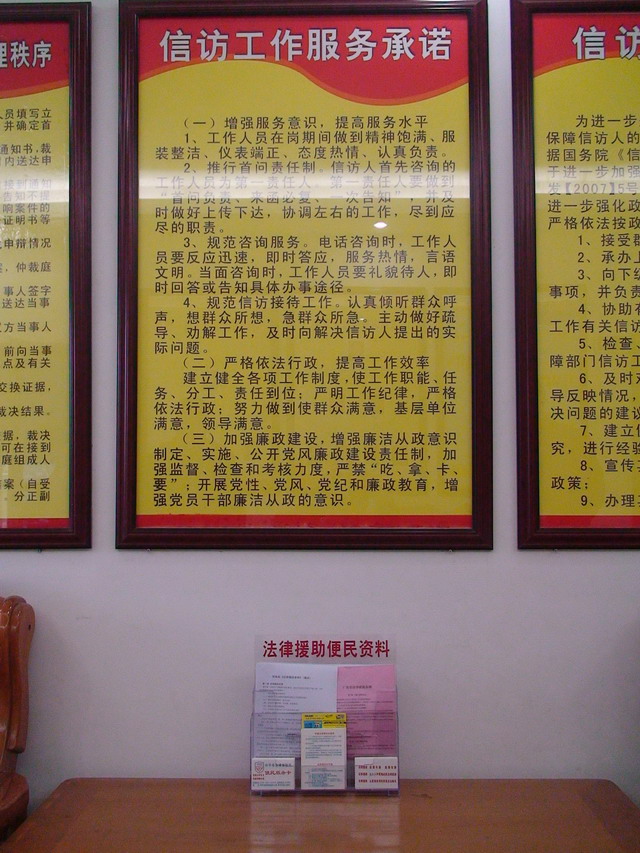 理秩序
员填写立
并确定首
通知书,裁
内送达申
响案件的
证明书等
申辩情况
,仲裁庭
事人签字
送达当事
方当事人
前向当事
点及有关
交换证据,
裁决结果。
据,裁决
可在接到
庭组成人
档案(自受
。分正副
信访工作服务承诺
(一)增强服务意识,提高服务水平
1、工作人员在岗期间做到精神饱满、服
装整洁、仪表端正、态度热情、认真负责。
2、推行首问责任制。信访人首先咨询的
工作人员为第一责任人,第一责任人要做到
“首问负责、来函必复、一次告知”,并及
时做好上传下达,协调左右的工作,尽到应
尽的职责。
3、规范咨询服务。电话咨询时,工作人
员要反应迅速,即时答应,服务热情,言语
文明。当面咨询时,工作人员要礼貌待人,即
时回答或告知具体办事途径。
4、规范信访接待工作。认真倾听群众呼
声,想群众所想,急群众所急。主动做好疏
导、劝解工作,及时向解决信访人提出的实
际问题。
(二)严格依法行政,提高工作效率
建立健全各项工作制度,使工作职能、任
务、分工、责任到位;严明工作纪律,严格
依法行政;努力做到使群众满意,基层单位
满意,领导满意。
(三)加强廉政建设,增强廉洁从政意识
制定、实施、公开党风廉政建设责任制,加
强监督、检查和考核力度,严禁“吃、拿、卡、
要”;开展党性、党风、党纪和廉政教育,增
强党员干部廉洁从政的意识。
信访
为进一步
保障信访人的
据国务院《信
于进一步加强
发【2007】5号
进一步强化政
严格依法按政
1、接受群
2、承办上
3、向下级
事项,并负责
4、协助有
工作有关信访
5、检查、
障部门信访工
6、及时
导反映情况,
决问题的建议
7、建立健
究,进行经验
8、宣传
政策;
9、办理其
法律援助便民资料